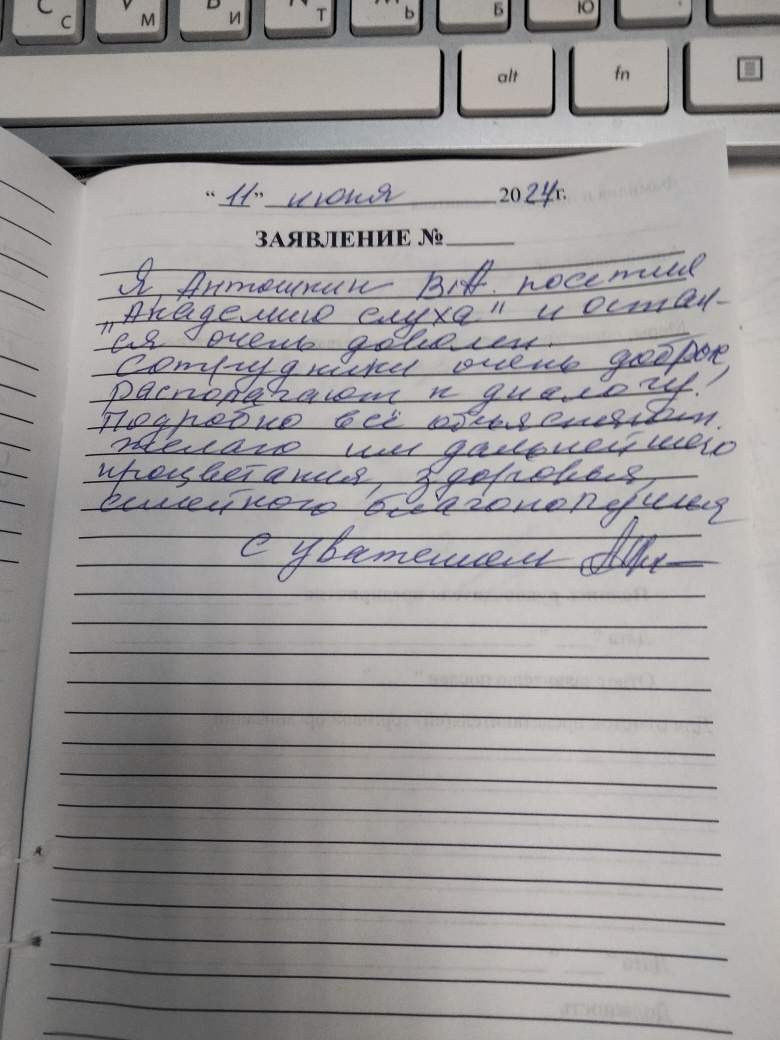 С С М И Т Ь Б Ю
alt fn
"11" июня 2024г.
ЗАЯВЛЕНИЕ №
Я Антошкин В.А. посетил
"Академию слуха" и остал-
ся очень доволен.
Сотрудники очень добры,
располагают к диалогу!
Подробно всё объясняют.
Желаю им дальнейшего
процветания, здоровья,
семейного благополучия
С уважением